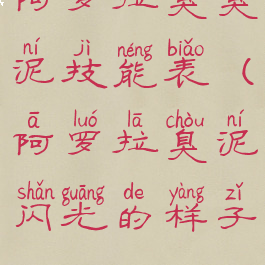 阿罗拉臭臭
ní jì néng biǎo
泥技能表（
ā luó lā chòu ní
阿罗拉臭泥
shǎn guāng de yàng zǐ
闪光的样子